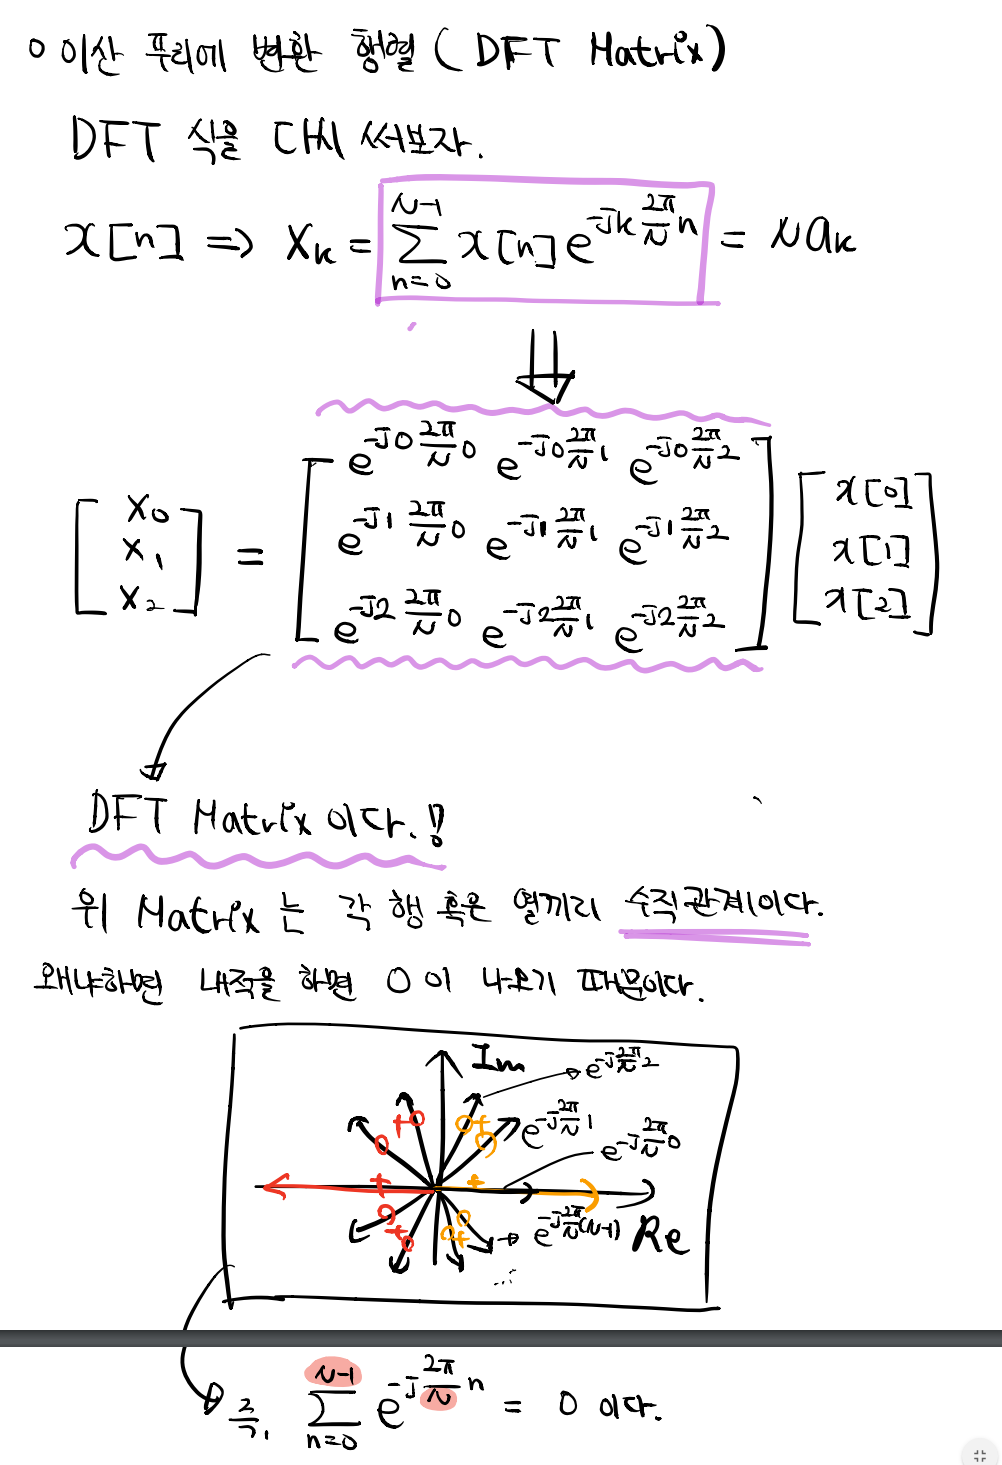 ○ 이산 푸리에 변환 행렬 ( DFT Matrix )
DFT 식을 다시 써보자.
x[n] => X_k = Σ_{n=0}^{N-1} x[n] e^{-jk \frac{2π}{N} n} = N a_k
⇓
[ X_0 X_1 X_2 ] = [ e^{-j0 \frac{2π}{N} 0} e^{-j0 \frac{2π}{N} 1} e^{-j0 \frac{2π}{N} 2} ] [ x[0] x[1] x[2] ]
e^{-j1 \frac{2π}{N} 0} e^{-j1 \frac{2π}{N} 1} e^{-j1 \frac{2π}{N} 2}
e^{-j2 \frac{2π}{N} 0} e^{-j2 \frac{2π}{N} 1} e^{-j2 \frac{2π}{N} 2}
DFT Matrix 이다.!
위 Matrix 는 각 행 혹은 열끼리 수직관계이다.
왜냐하면 내적을 하면 0 이 나오기 때문이다.
Im
e^{-j \frac{2π}{N} 2}
e^{-j \frac{2π}{N} 1}
e^{-j \frac{2π}{N} 0}
e^{-j \frac{2π}{N} (N-1)}
Re
즉, Σ_{n=0}^{N-1} e^{-j \frac{2π}{N} n} = 0 이다.